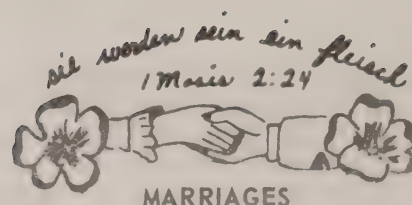 sie werden sein ein fleisch
1 Mosis 2:24
MARRIAGES